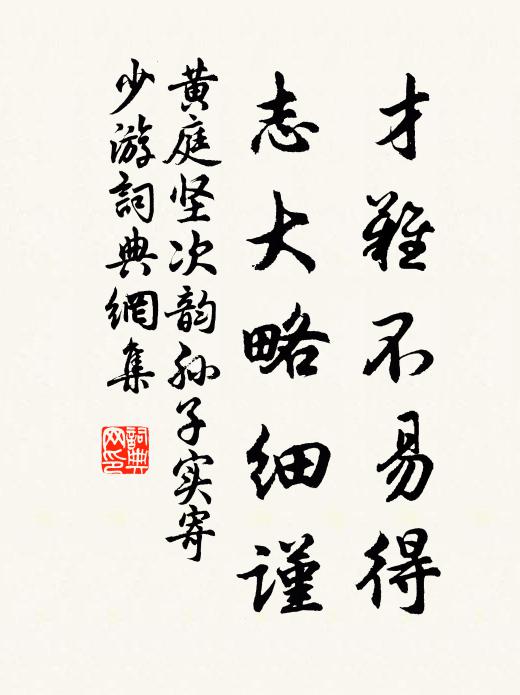 才難不易得
志大略細謹
黄庭坚次韵孙子实寄
少游詞典網集
詞典
网印